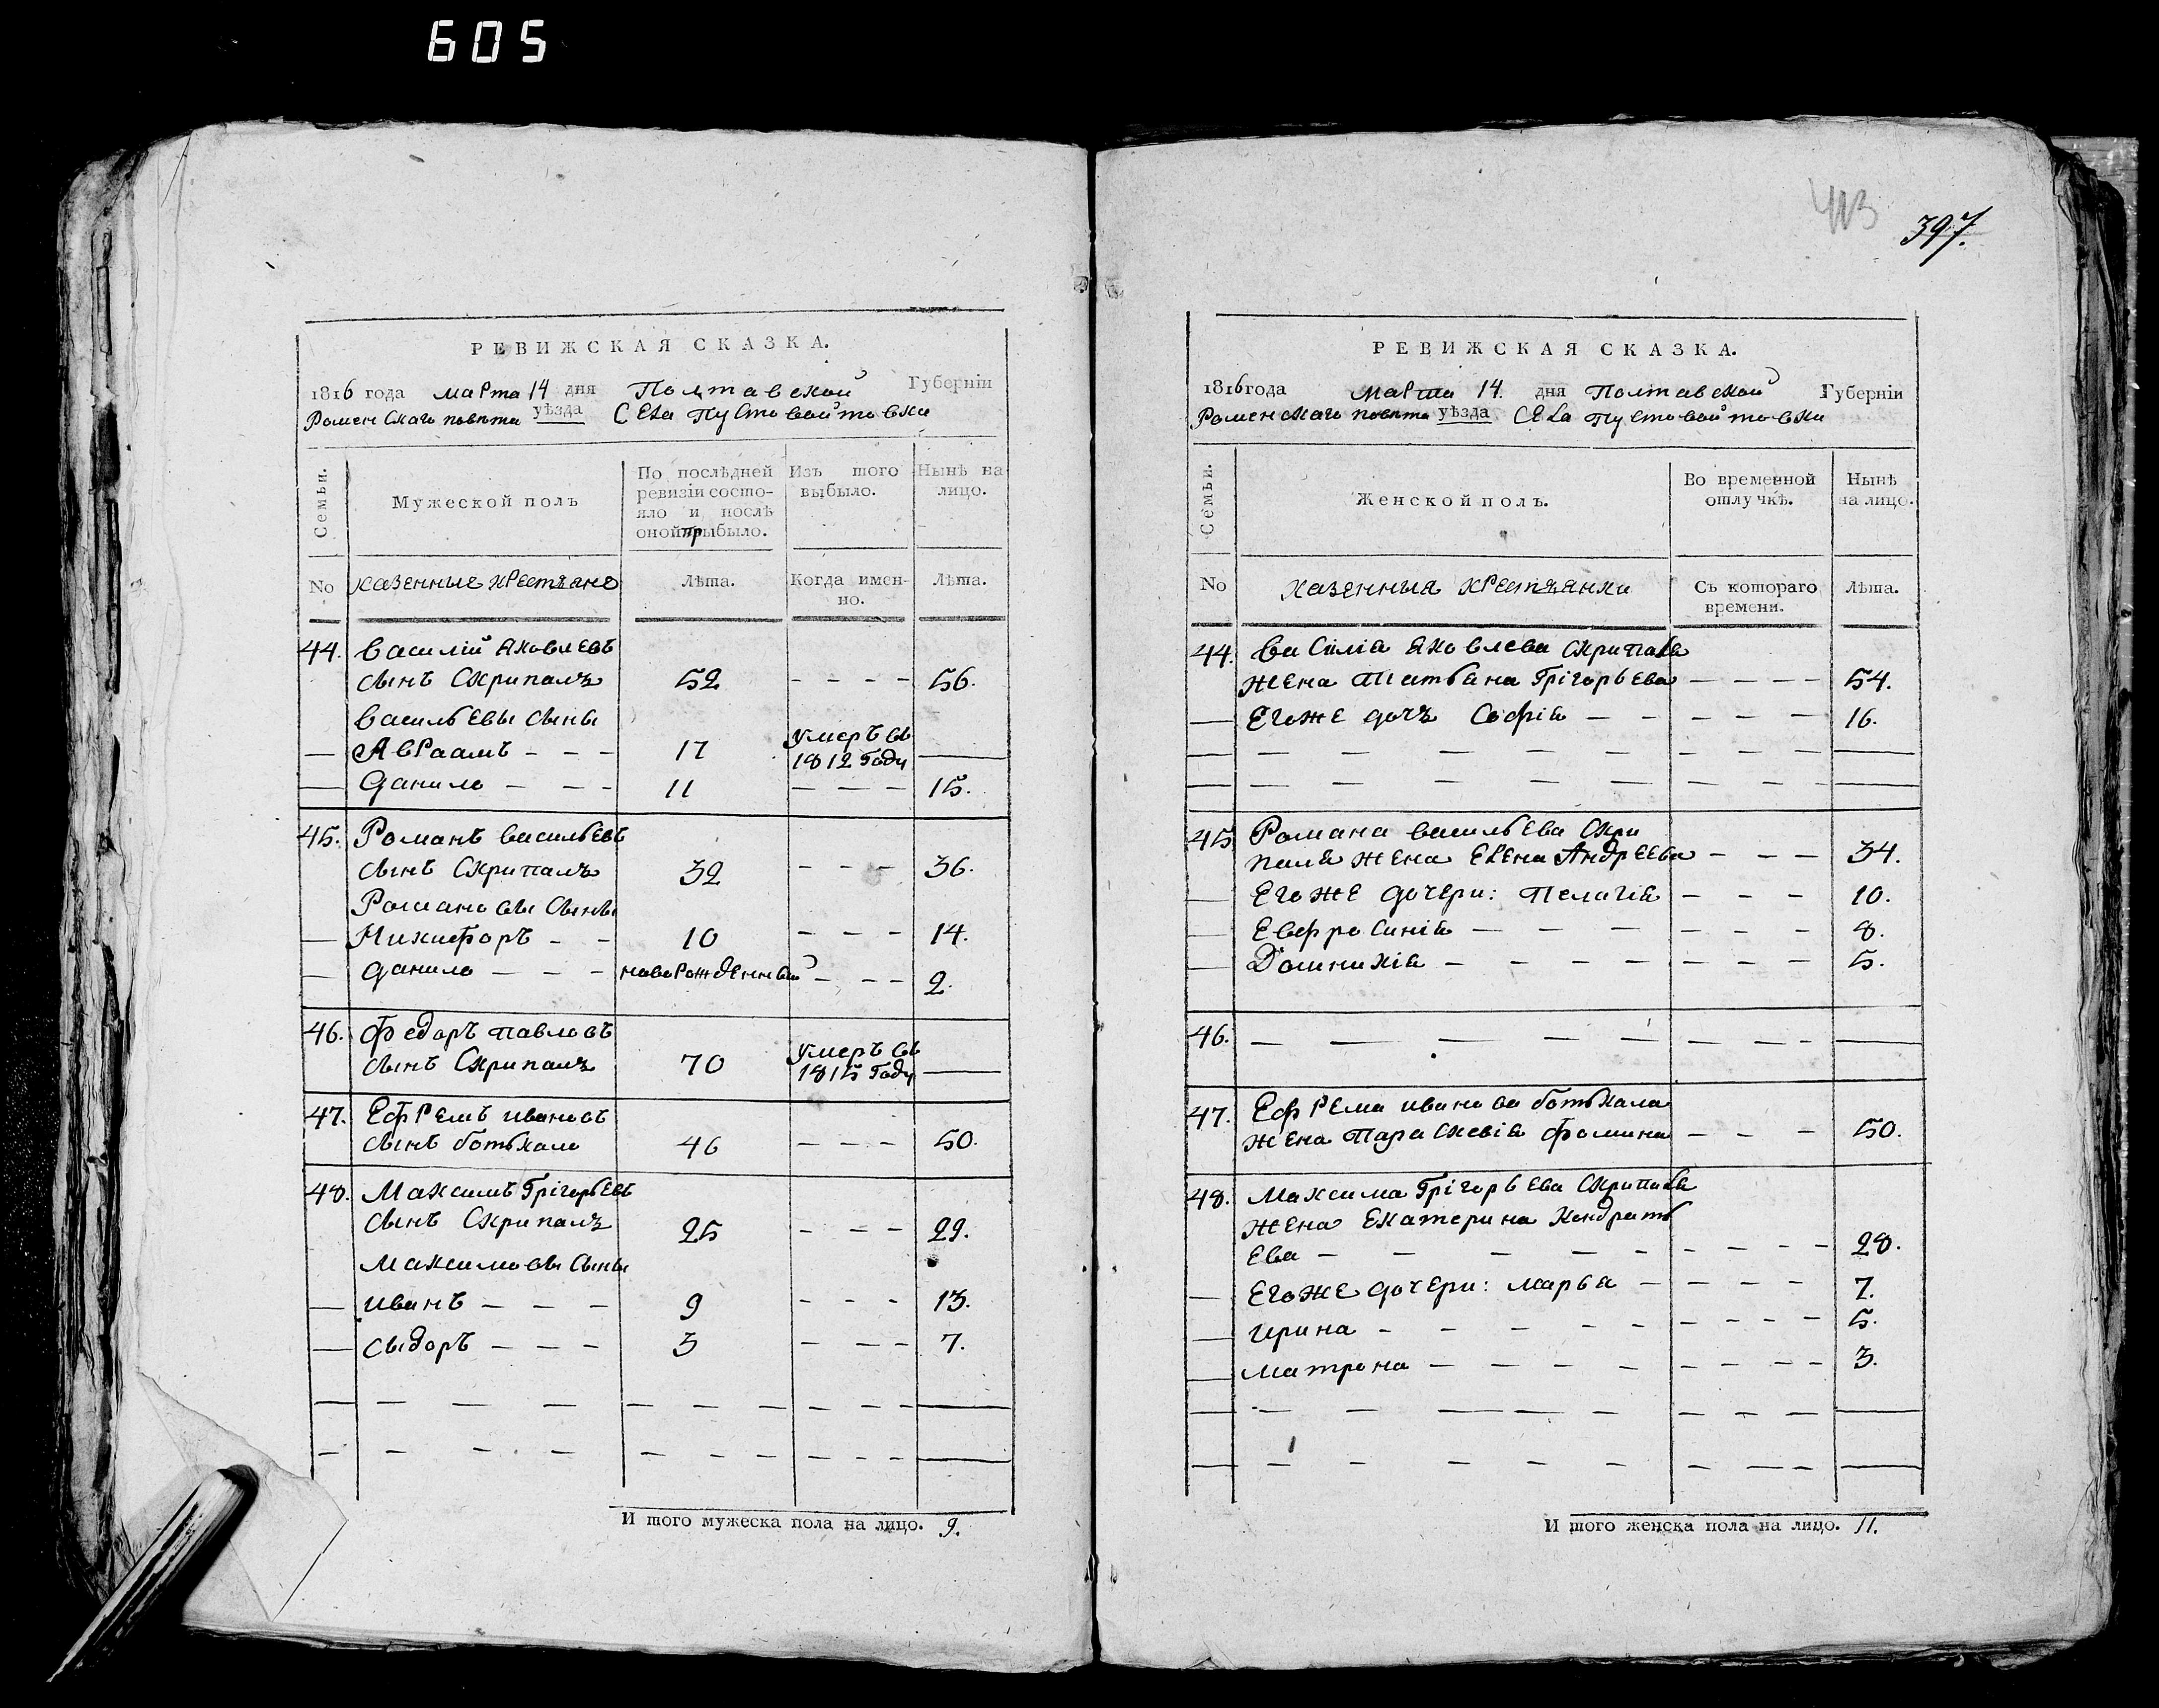 605
РЕВИЖСКАЯ СКАЗКА.
1816 года марта 14 дня Полтавской Губерніи
Роменскаго повѣта уѣзда Села Пустовойтовки
Семьи.
Мужеской полъ
По послѣдней ревизіи состо-
яло и послѣ
оной прибыло.
Изъ того
выбыло.
Нынѣ на
лицо.
No
казенные крестъяне
Лѣта.
Когда имен-
но.
Лѣта.
44. Василій Яковлевъ
сынъ Скрипалъ 52 - - - - 56.
Васильевы сыны
— Авраамъ - - - 17 умеръ въ 1812 году —
— Данило - - - 11 - - - 15.
45. Романъ Васильевъ
сынъ Скрипалъ 32 - - - 36.
Романовы сыны
— Никифоръ - - 10 - - - 14.
— Данило - - - новорожденный - - - 2.
46. Федоръ Павловъ
сынъ Скрипалъ 70 умеръ въ 1815 году —
47. Ефремъ Ивановъ
сынъ Ботькало 46 - - - 50.
48. Максимъ Грігорьевъ
сынъ Скрипалъ 25 - - - 29.
Максимовы сыны
— Иванъ - - - 9 - - - 13.
— Сыдоръ - - - 3 - - - 7.
И того мужеска пола на лицо. 9.
413
397.
РЕВИЖСКАЯ СКАЗКА.
1816 года марта 14. дня Полтавской Губерніи
Роменскаго повѣта уѣзда Села Пустовойтовки
Семьи.
Женской полъ.
Во временной
отлучкѣ.
Нынѣ
на лицо.
No
казенныя крестъянки
Съ котораго
времени.
Лѣта.
44. Васілія Яковлева Скрипаля
жена Татьяна Грігорьева - - - - 54.
— Егоже дочъ Софія - - - - - 16.
45 Романа Васильева Скри
паля жена Елена Андреева - - - 34.
— Егоже дочери: Пелагія - - - 10.
— Евфросинія - - - - - - 8.
— Домникія - - - - - - - 5.
46.
47. Ефрема Иванова Ботькала
жена Параскевія Фомина - - - 50.
48. Максима Грігорьева Скрипаля
жена Екатерина Кондрать
ева - - - - - - - - - 28.
— Егоже дочери: Марья - - - - 7.
— Ирина - - - - - - - - - 5.
— Матрона - - - - - - - - 3.
И того женска пола на лицо. 11.